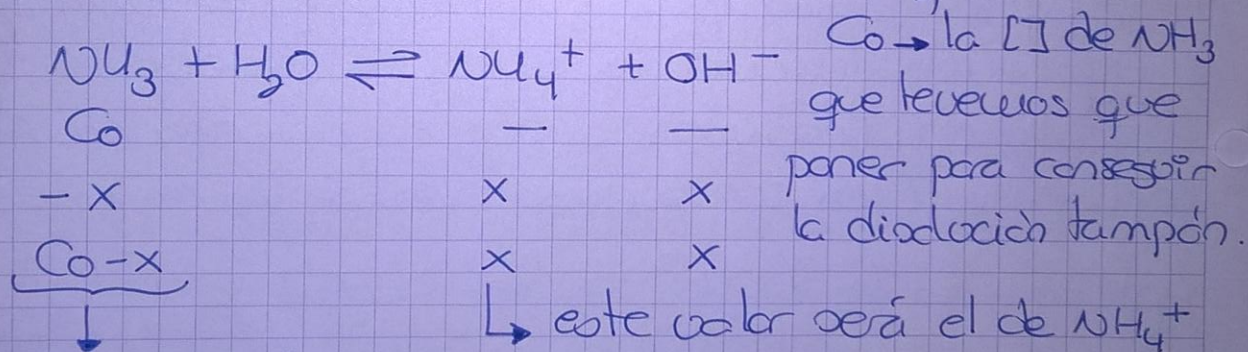 NH₃ + H₂O ⇌ NH₄⁺ + OH⁻
Co — —
- x x x
Co-x x x
↓ ↳ este valor será el de NH₄⁺
Co → la [] de NH₃
que tenemos que
poner para conseguir
la disolución tampón.